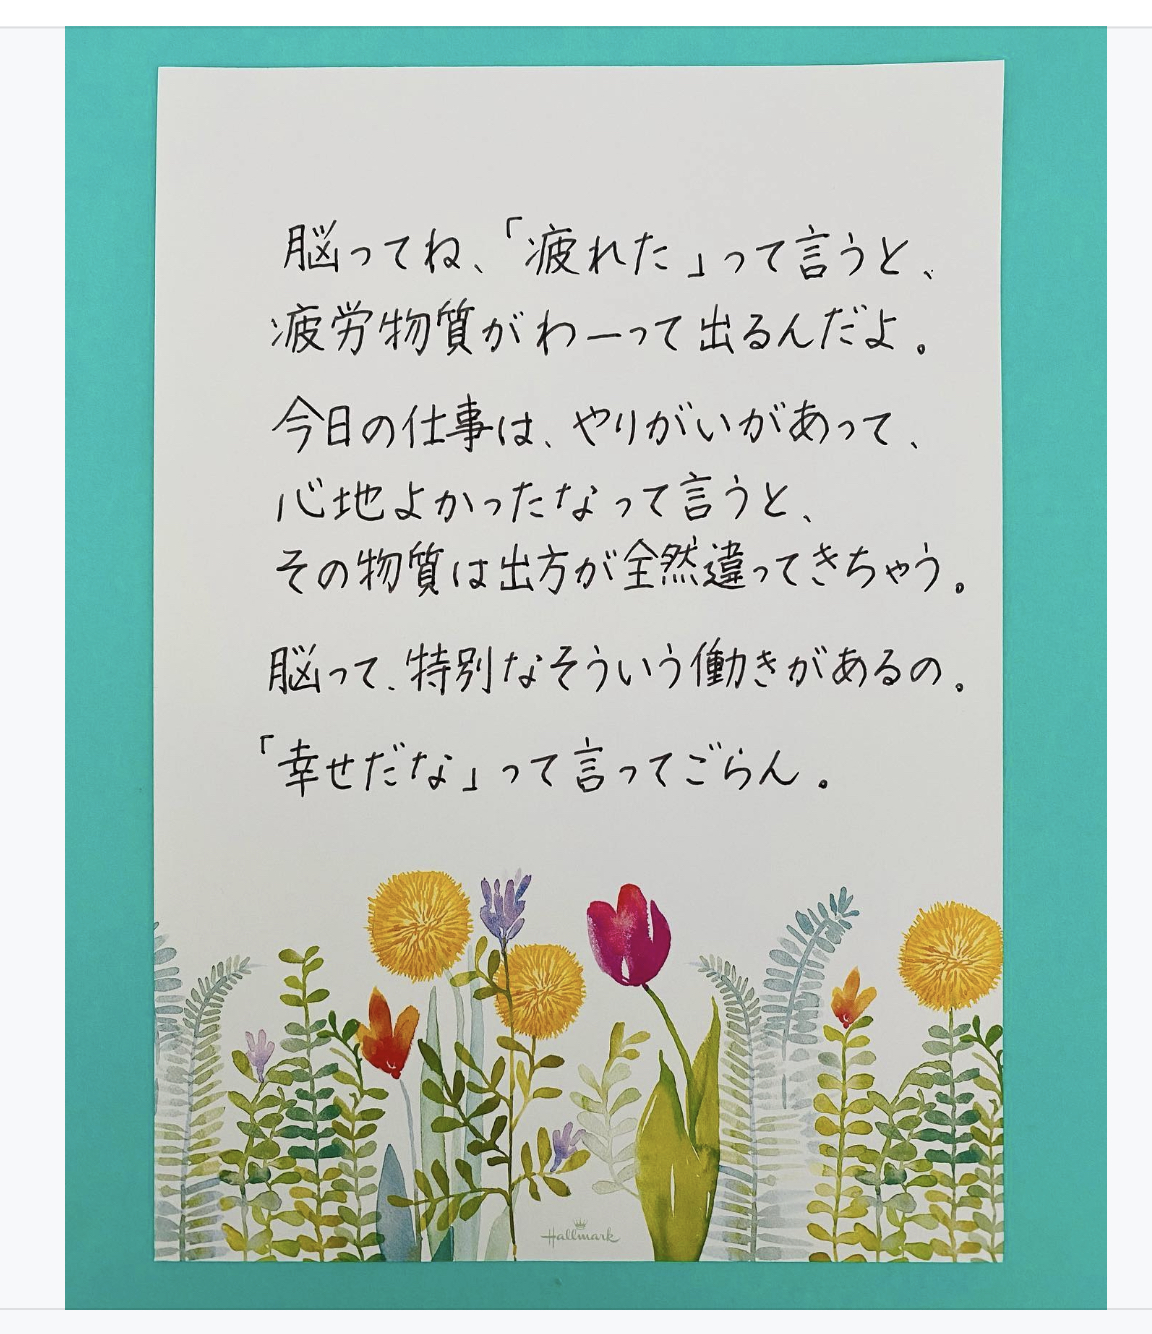 脳ってね、「疲れた」って言うと、
疲労物質がわーって出るんだよ。
今日の仕事は、やりがいがあって、
心地よかったなって言うと、
その物質は出方が全然違ってきちゃう。
脳って、特別なそういう働きがあるの。
「幸せだな」って言ってごらん。
Hallmark